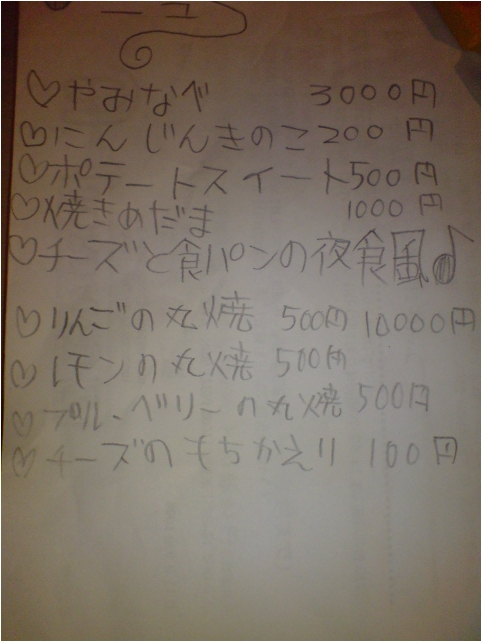 ニュ
♡やみなべ 3000円
♡にんじんきのこ200円
♡ポテートスイート500円
♡焼きめだま 1000円
♡チーズと食パンの夜食風♪
♡りんごの丸焼 500円 10000円
♡レモンの丸焼 500円
♡ブルーベリーの丸焼 500円
♡チーズのもちかえり 100円